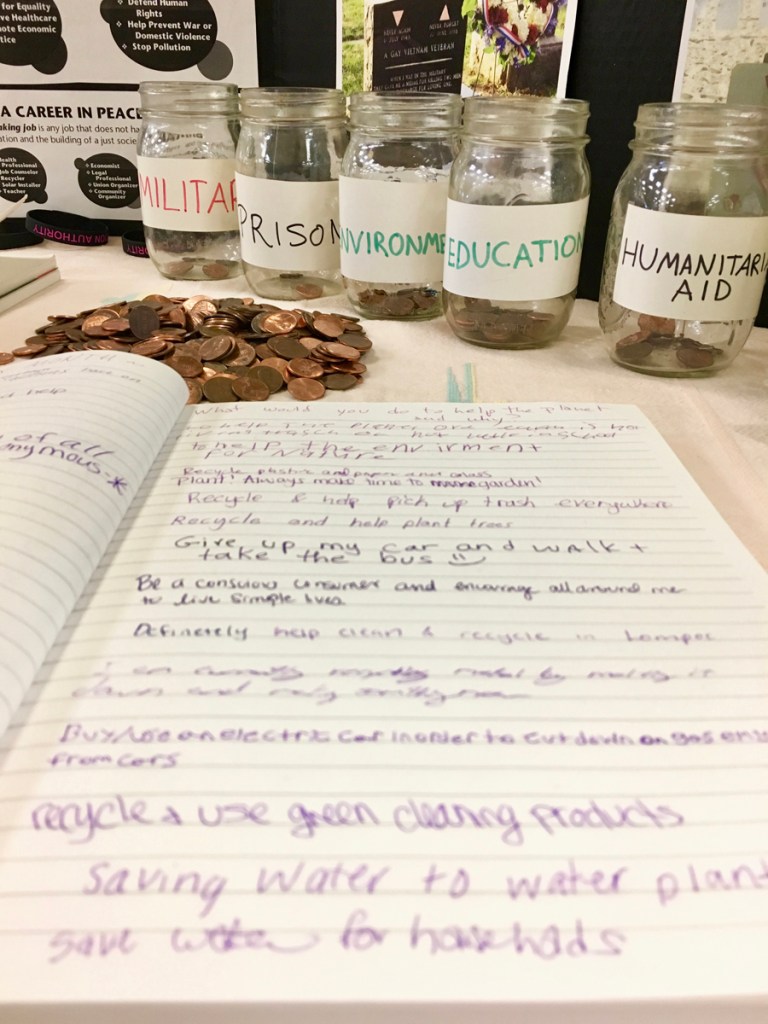 for Equality
ve Healthcare
ote Economic
tice
Defend Human
Rights
Help Prevent War or
Domestic Violence
Stop Pollution
A GAY VIETNAM VETERAN
A CAREER IN PEAC
king job is any job that does not ha
ation and the building of a just socie
ealth
Professional
Job Counselor
Recycler
Solar Installer
Teacher
Economist
Legal
Professional
Union Organizer
Community
Organizer
ON AUTHORITY
MILITAR
PRISON
NVIRONME
EDUCATION
HUMANITARI
AID
help
of all
nymous
What would you do to help the planet
and why?
to help the envirment
For Nature
Recycle plastic and paper and glass
Plant! Always make time to garden!
Recycle & help pick up trash everywhere
Recycle and help plant trees
Give up my car and walk +
take the bus
Be a conscious consumer and encourage all around me
to live simple lives
Definetely help clean & recycle in Lompoc
Buy/use an electric car in order to cut down on gas
from cars
recycle & use green cleaning products
Saving water to water plant
save for